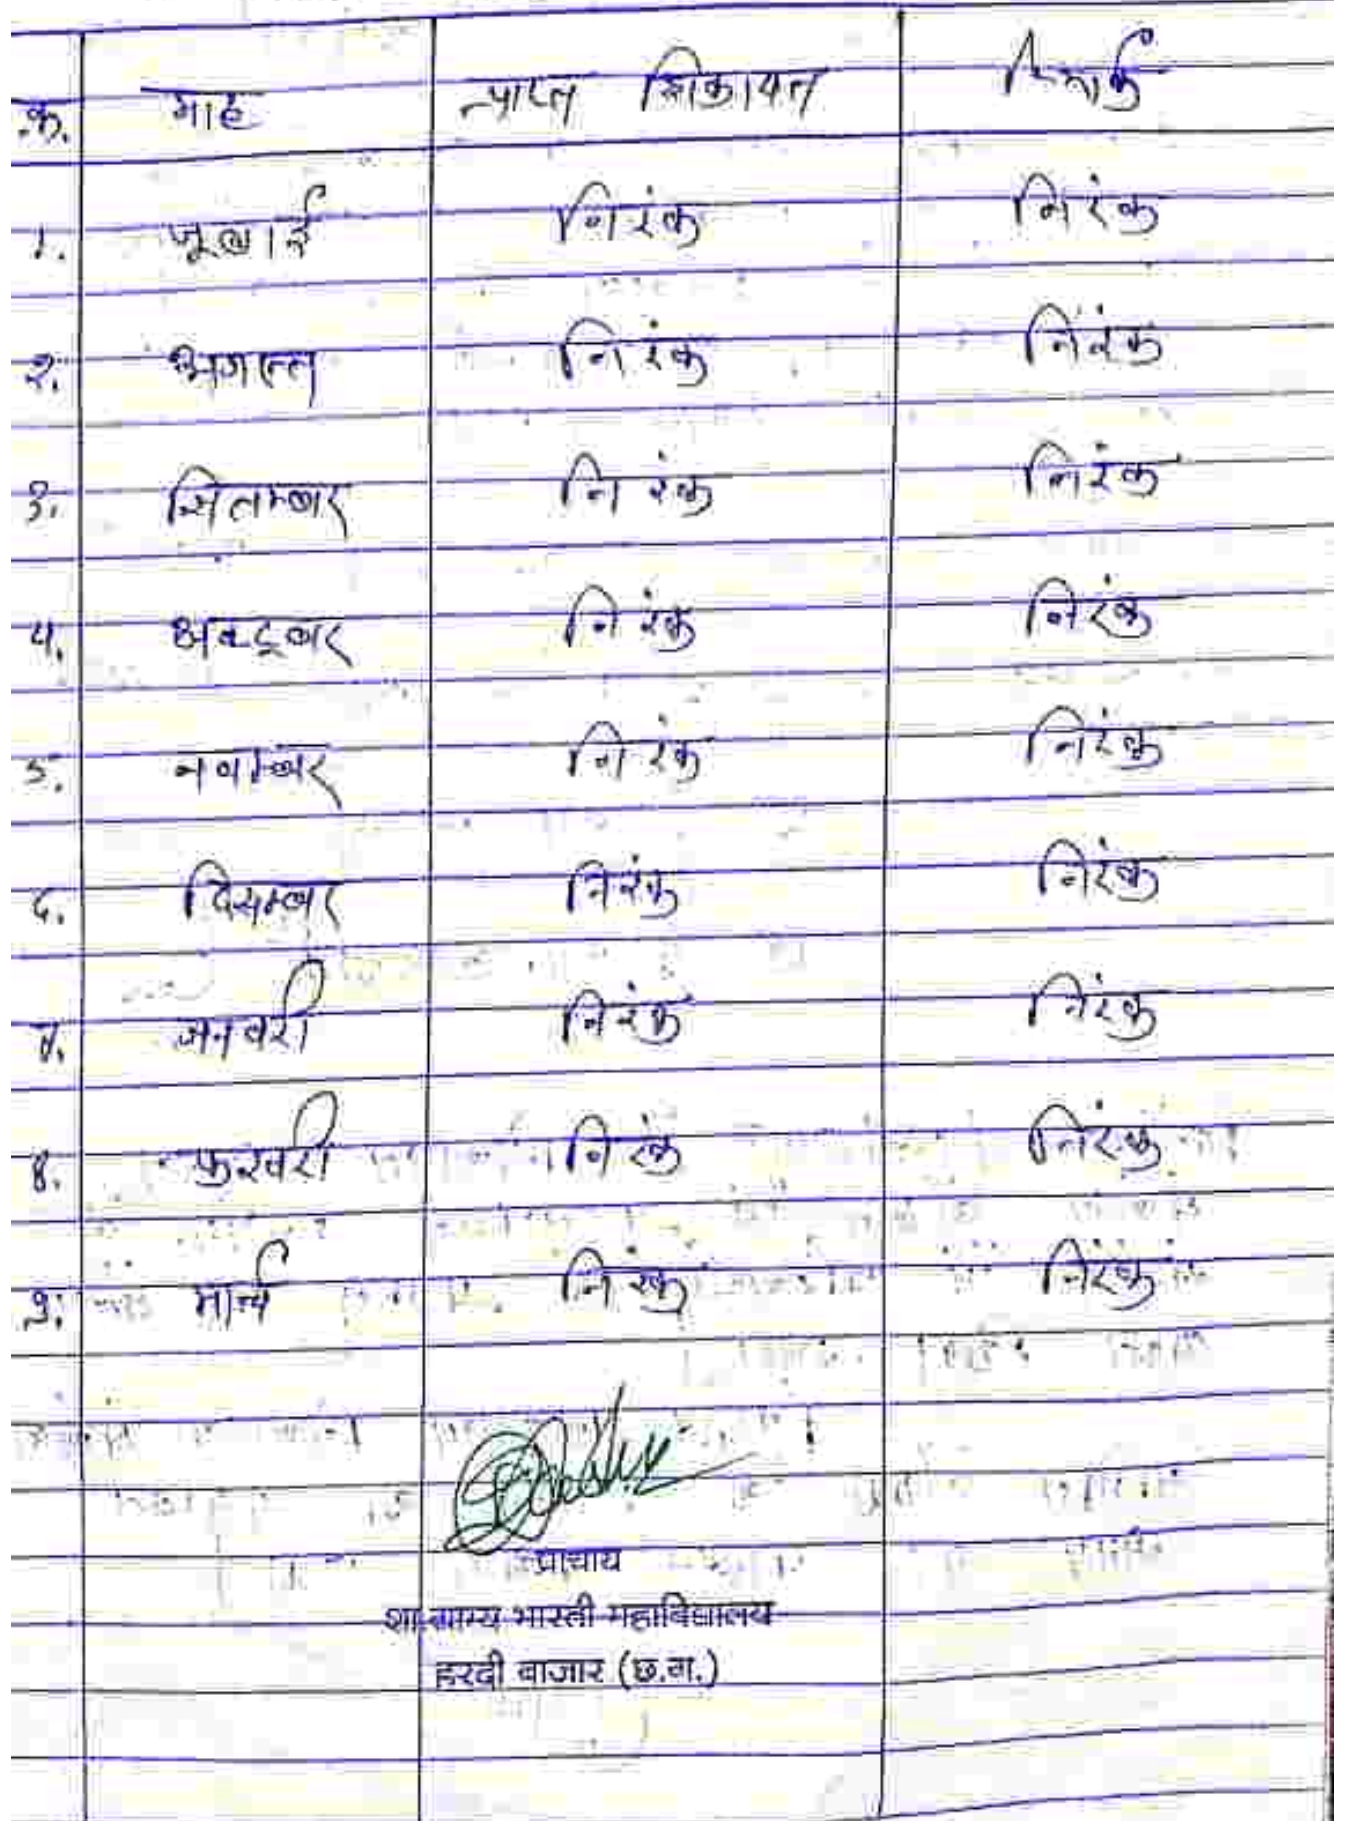 क्र. माह प्राप्त शिकायत रिमार्क
1. जूलाई निरंक निरंक
2. अगस्त निरंक निरंक
3. सितम्बर निरंक निरंक
4. अक्टूबर निरंक निरंक
5. नवम्बर निरंक निरंक
6. दिसम्बर निरंक निरंक
7. जनवरी निरंक निरंक
8. फरवरी निरंक निरंक
9. मार्च निरंक निरंक
प्राचार्य
शा. ग्राम्य भारती महाविद्यालय
हरदी बाजार (छ.ग.)